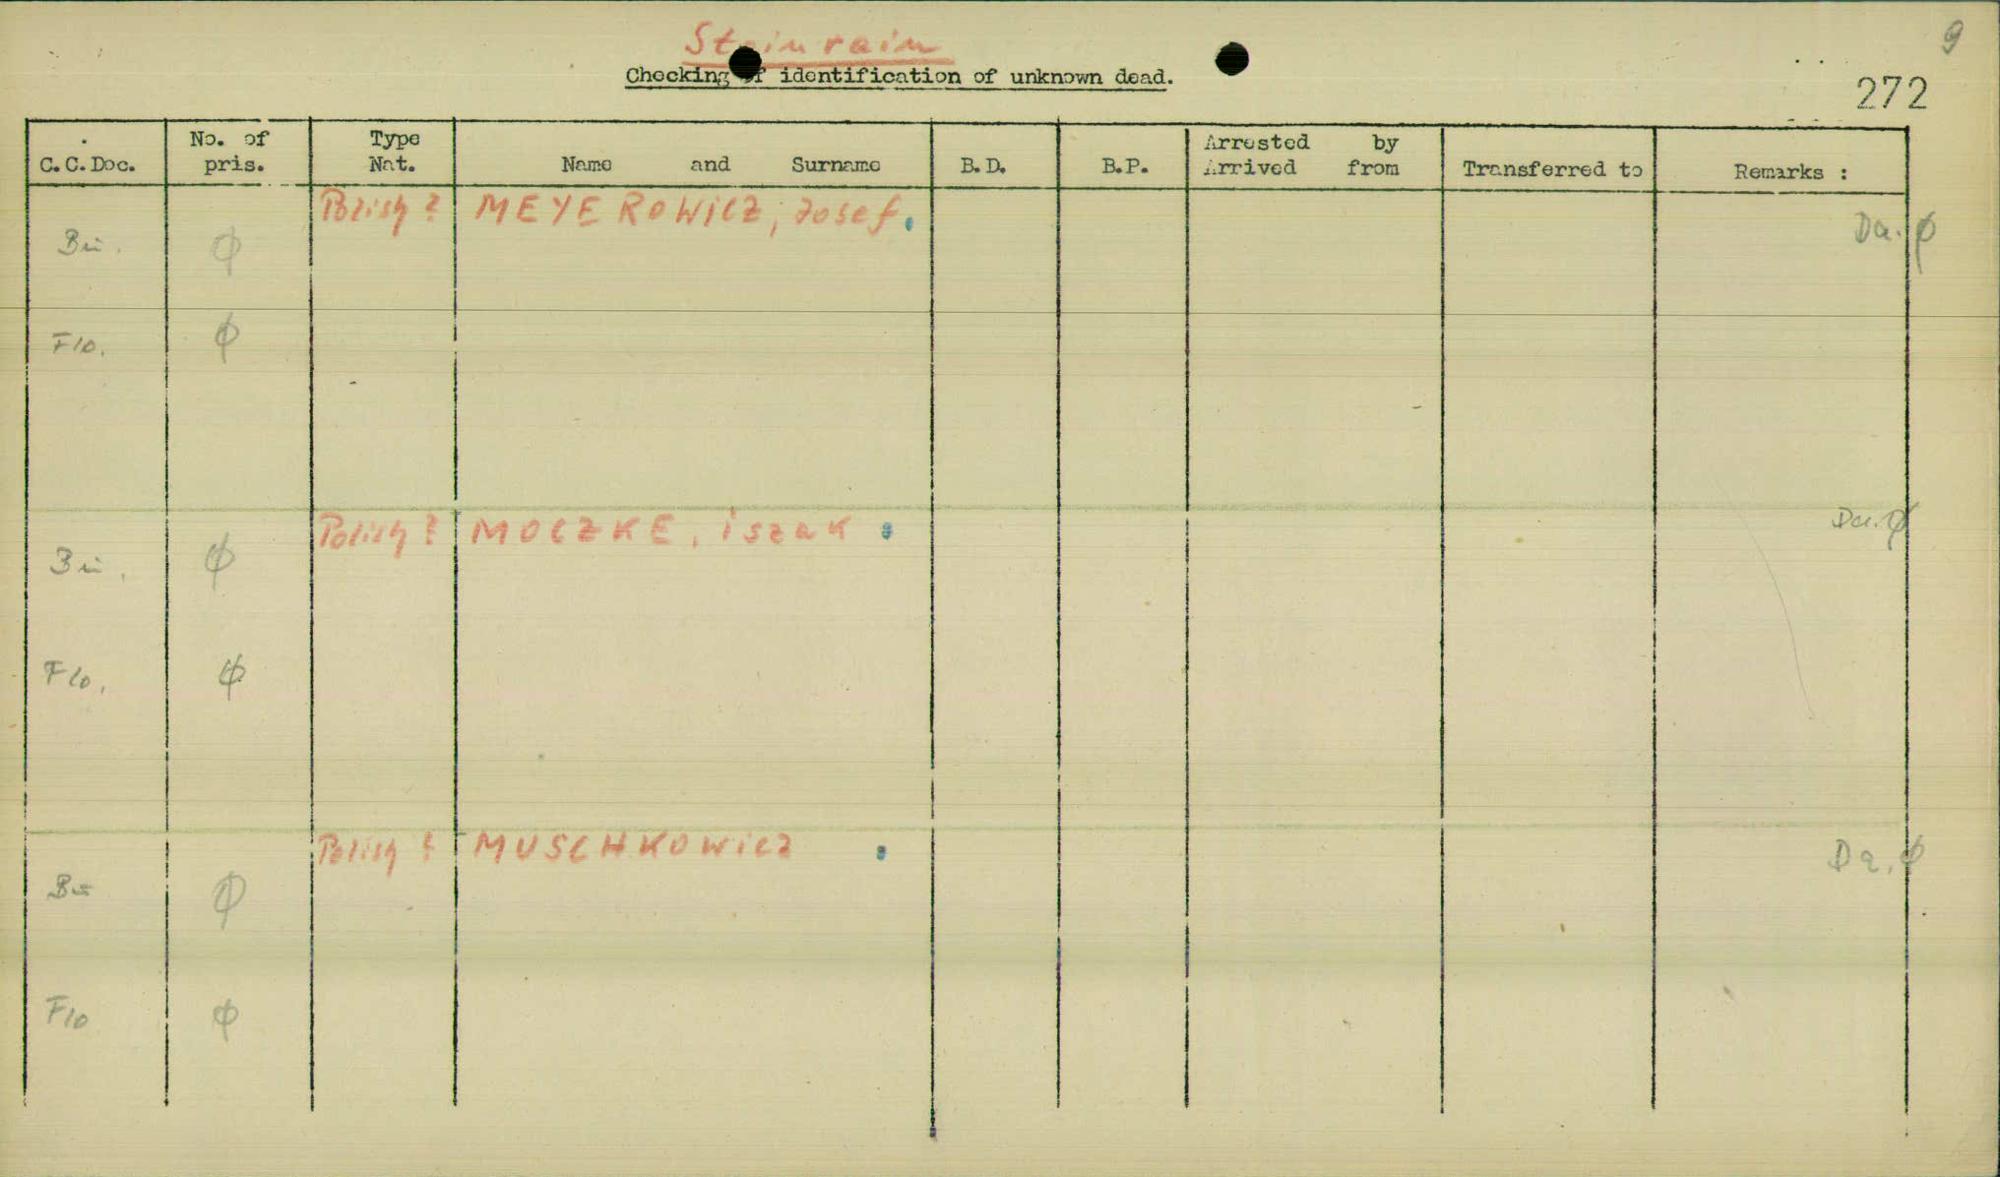 9
Steinrain
Checking of identification of unknown dead.
272
C.C.Doc. No. of pris. Type Nat. Name and Surname B.D. B.P. Arrested by Arrived from Transferred to Remarks :
Polish ? MEYEROWICZ, Josef. Da. ϕ
Bu. ϕ
Flo. ϕ
Polish ? MOCZKE, iszak Da. ϕ
Bu. ϕ
Flo. ϕ
Polish ? MUSCHKOWICZ Da. ϕ
Bu ϕ
Flo ϕ